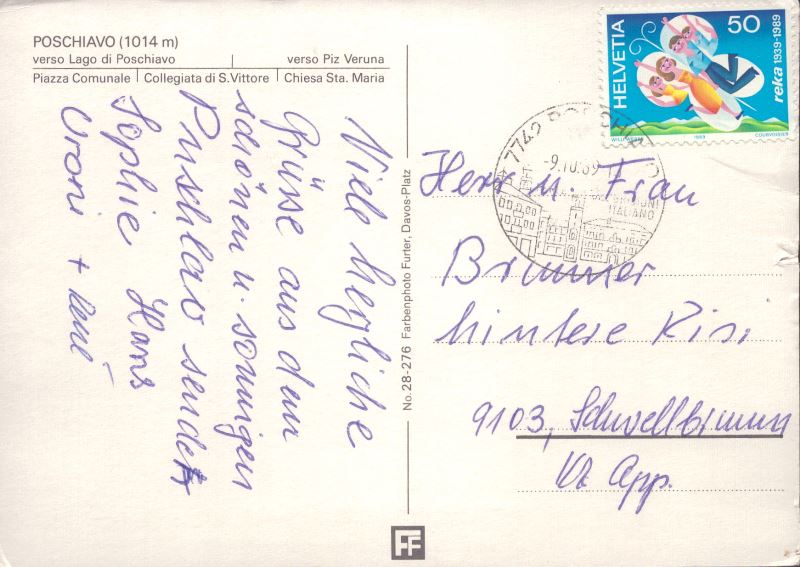 POSCHIAVO (1014 m)
verso Lago di Poschiavo | verso Piz Veruna
Piazza Comunale | Collegiata di S. Vittore | Chiesa Sta. Maria
Viele herzliche
Grüsse aus dem
schönen u. sonnigen
Puschlav sendet
Sophie Hans
Vroni + René
No. 28-276 Farbenphoto Furter, Davos-Platz
FF
HELVETIA
50
reka 1939-1989
1989
COURVOISIER
7742
-9.10.89
ITALIANO
Herr u. Frau
Brunner
hintere Risi
9103, Schwellbrunn
Kt App.